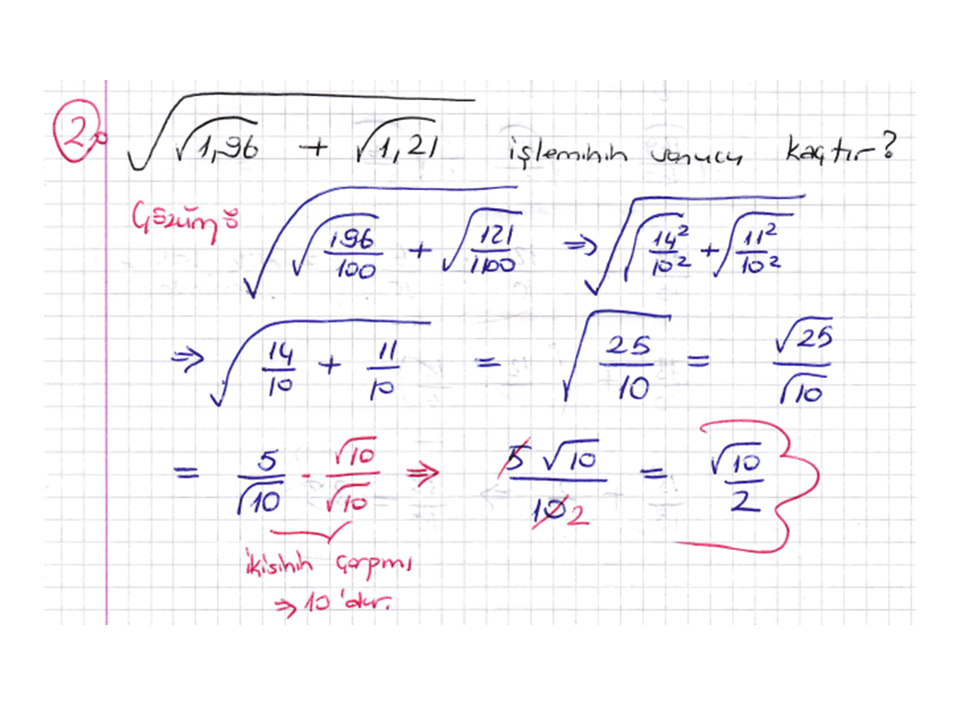 2. √(√1,96 + √1,21) işleminin sonucu kaçtır?
Çözüm: √(√(196/100) + √(121/100)) ⇒ √(√(14²/10²) + √(11²/10²))
⇒ √(14/10 + 11/10) = √(25/10) = √25/√10
= 5/√10 · √10/√10 ⇒ 5√10/10 2 = √10/2
ikisinin çarpımı
⇒ 10'dur.